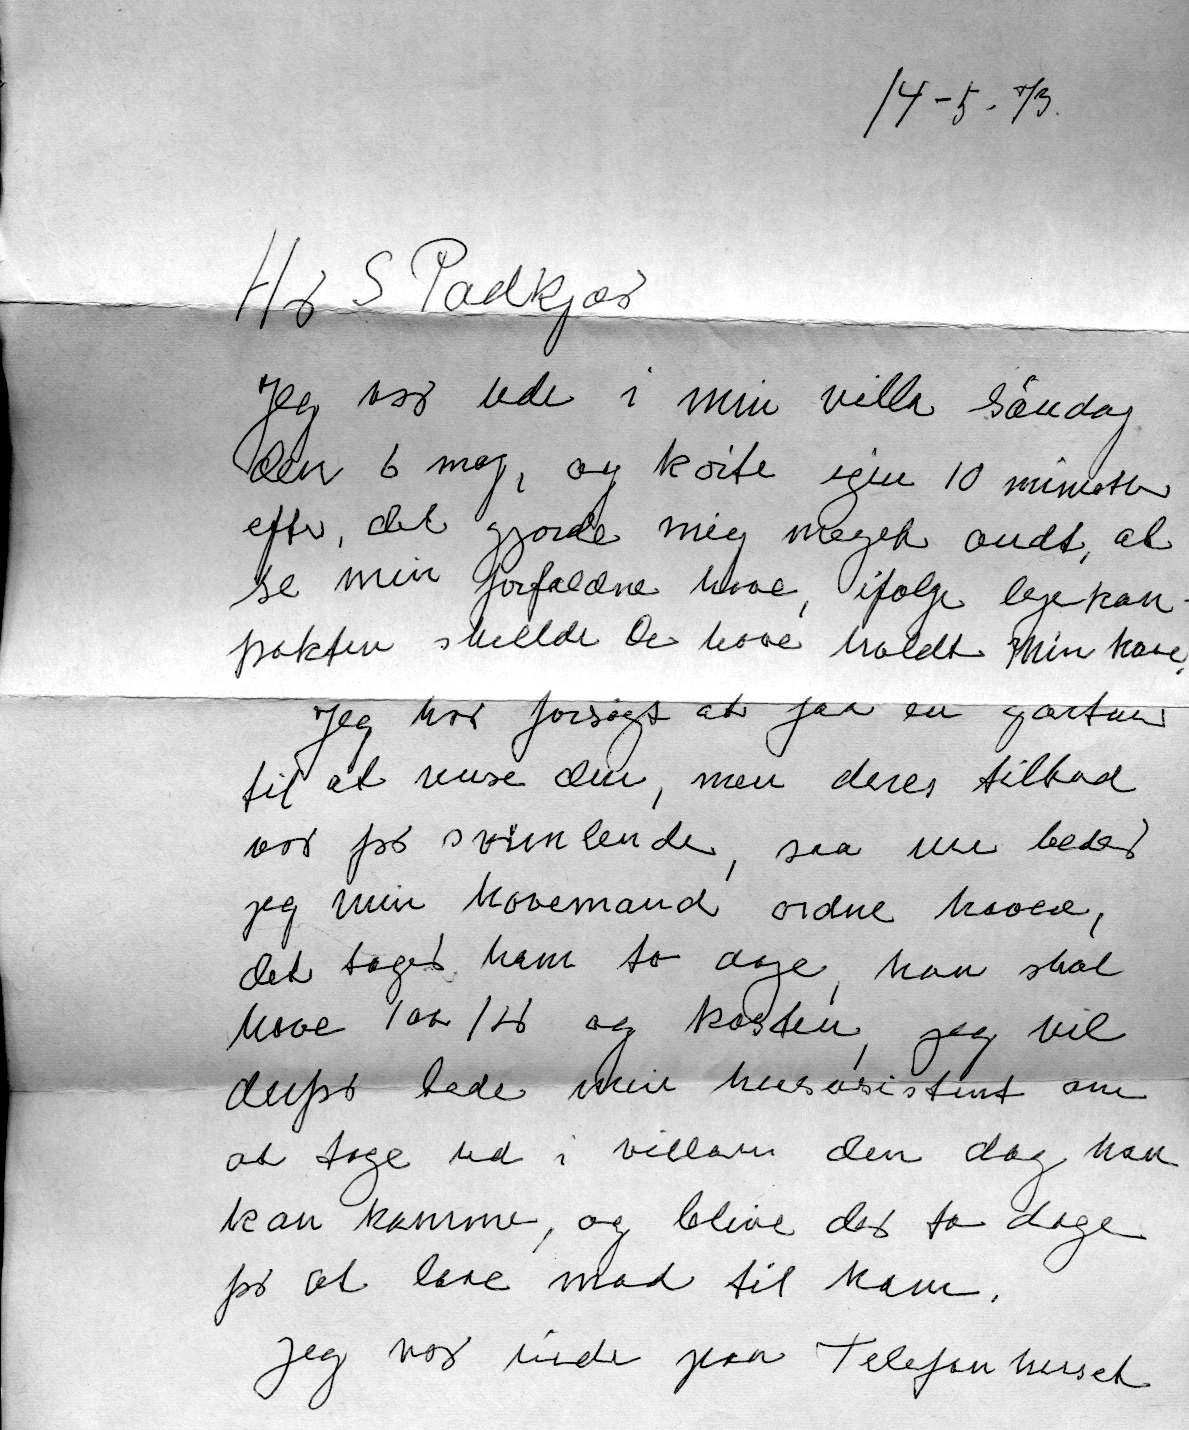 14-5-73.
Hr S Padkjær
Jeg var ude i min villa Søndag
den 6 maj, og kørte igen 10 minutter
efter, det gjorde mig meget ondt, at
se min forfaldne have, ifølge lejekon-
trakten skulde De have holdt min have.
Jeg har forsøgt at faa en gartner
til at rense den, men deres tilbud
var for svimlende, saa nu beder
jeg min havemand ordne haven,
det tager ham to dage, han skal
have 100 kr og kosten, jeg vil
derfor bede min husasistent om
at tage ud i villaen den dag han
kan komme, og blive der to dage
for at lave mad til ham.
Jeg var inde paa Telefonhuset